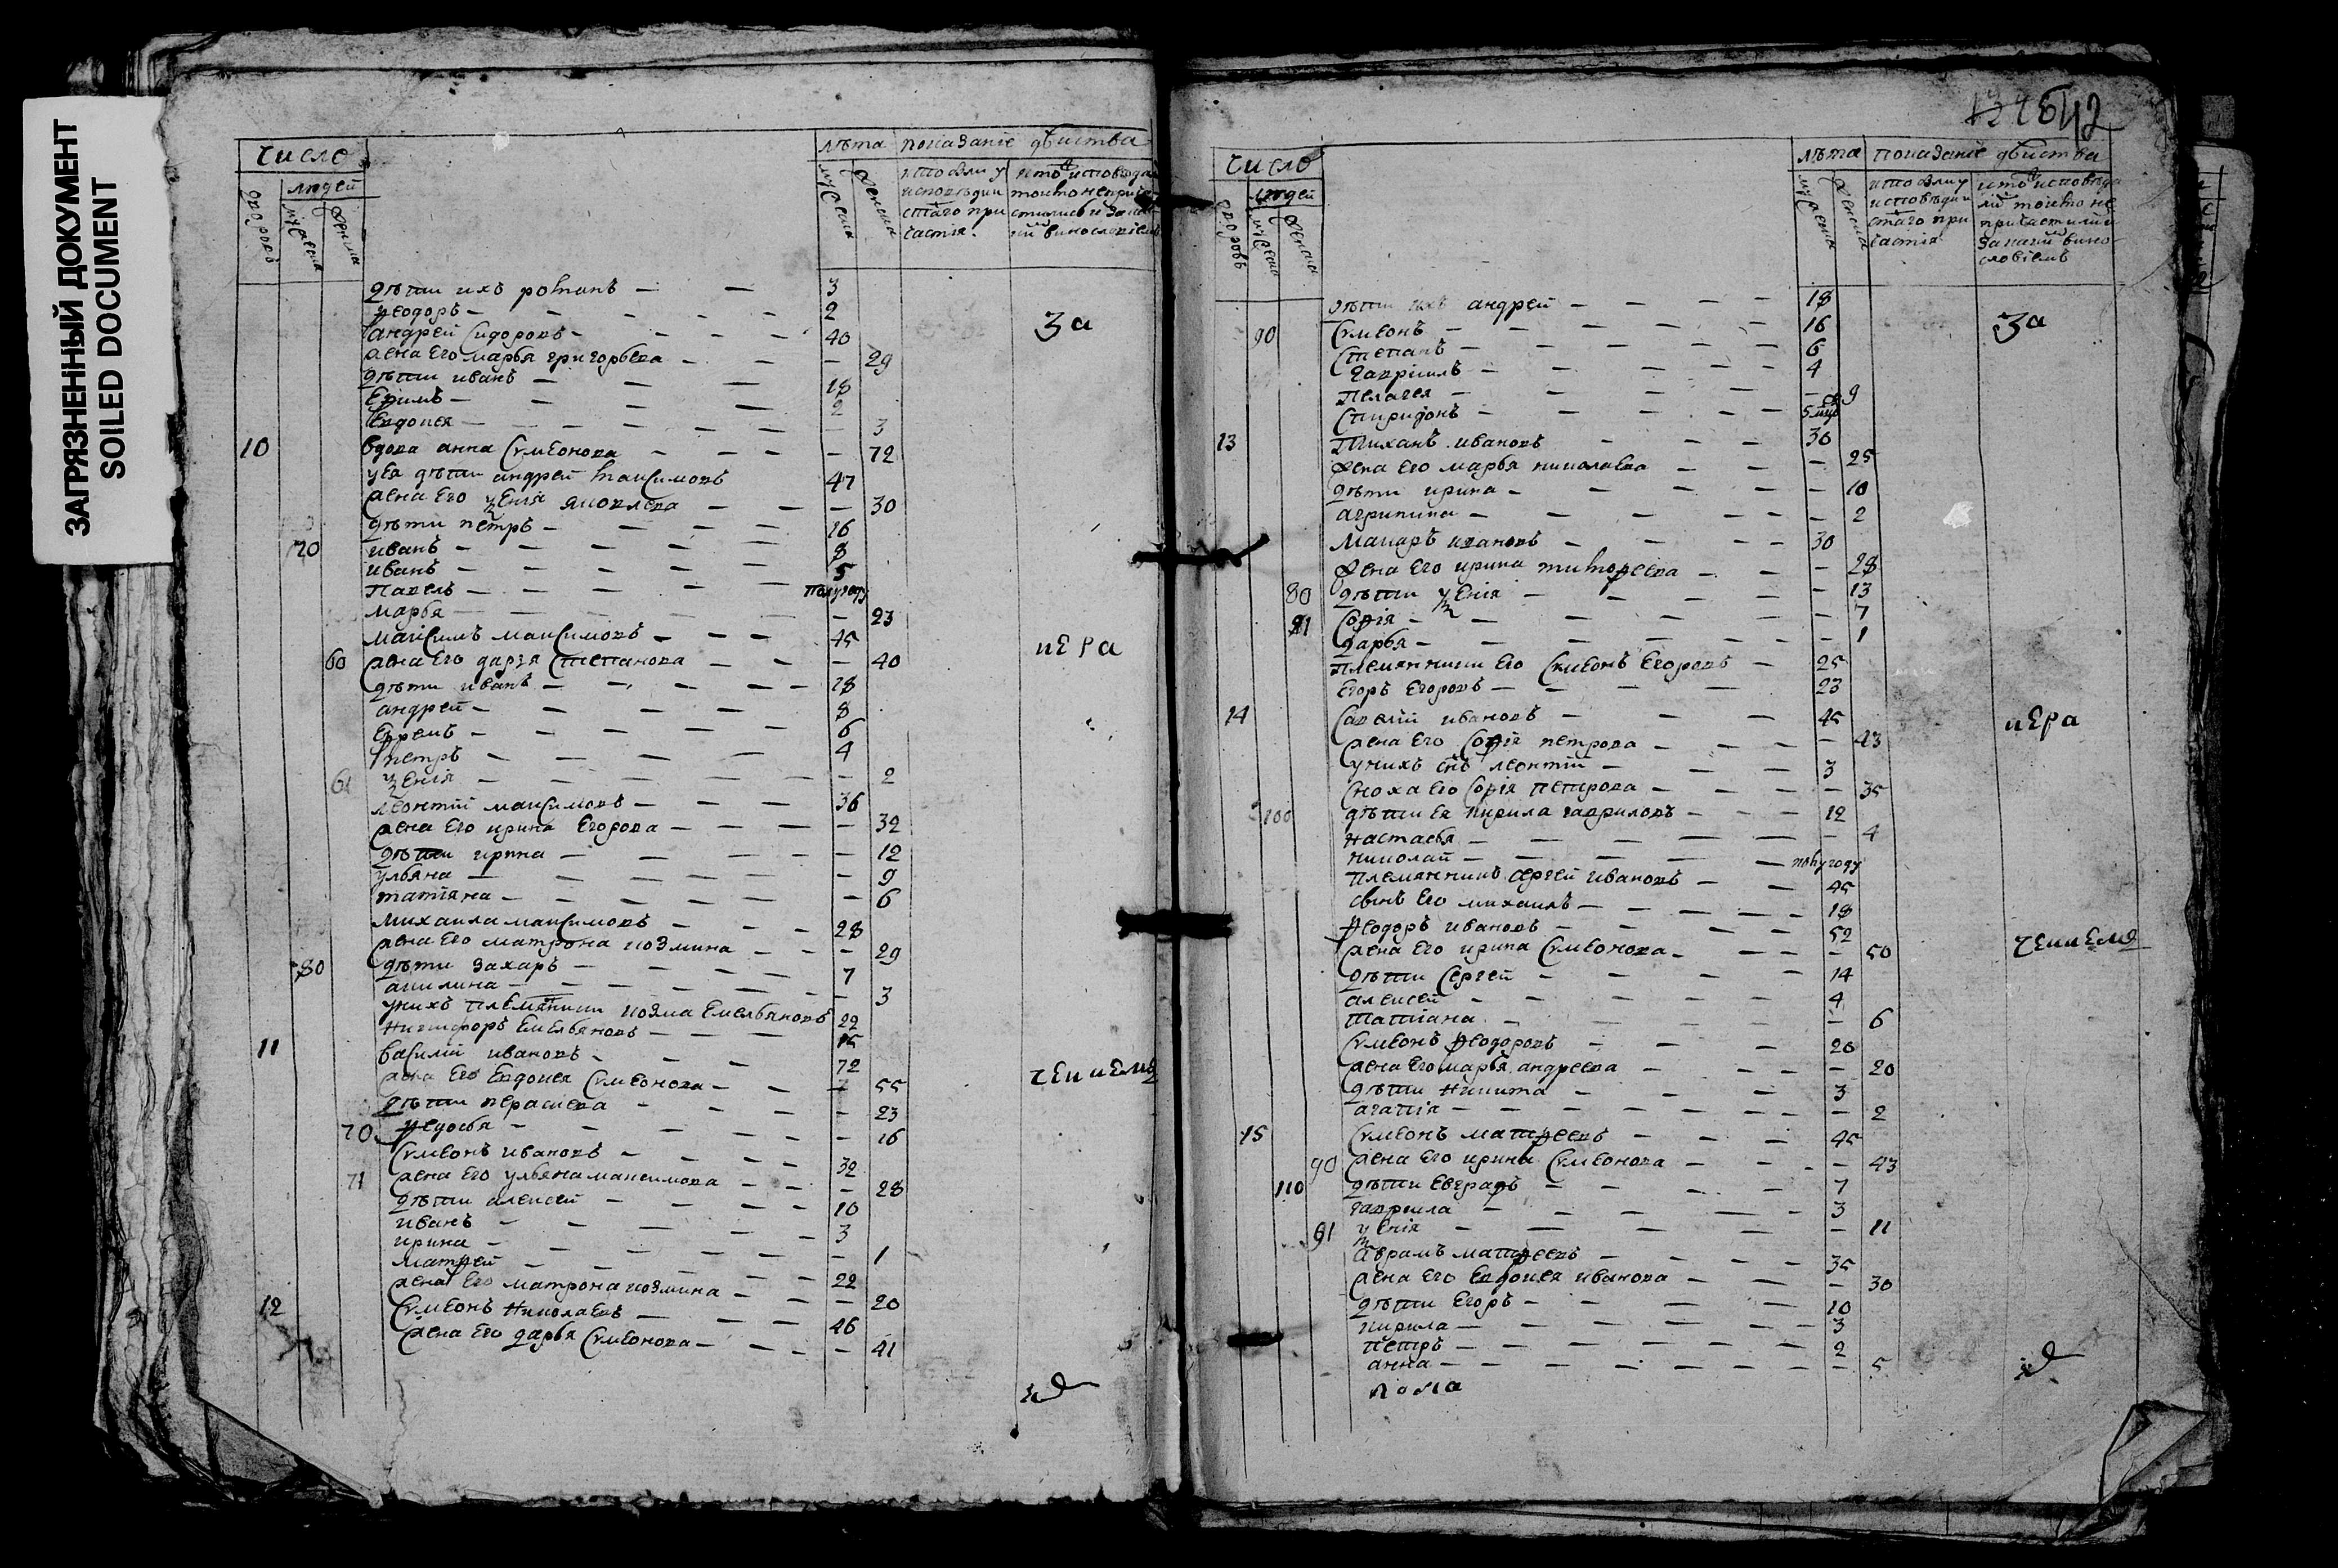 ЗАГРЯЗНЕННЫЙ ДОКУМЕНТ
SOILED DOCUMENT
число
людей
лѣта показаніе дѣиства
дѣти ихъ романъ — — 3
Ѳеодоръ — — — 2
андрей Сидоровъ — — 40
жена Его марѳа григорьева — — 29
дѣти иванъ — — 18
Ефимъ — — 2
Евдокея — — 3
10 вдова анна Сѵмеонова — — 72
у Ея дѣти андрей маѯимовъ 47
жена Его ѯенія яковлева — — 30
дѣти петръ — — 16
70 иванъ — — 8
иванъ — — 5
Павелъ — — полугоду
марѳа — — 23
маѯимъ маѯимовъ — — 45
60 жена Его дарья Степанова — — 40
дѣти иванъ — — 18
андрей — — 8
Ефремъ — — 6
петръ — — 4
61 ѯенія — — 2
леонтій маѯимовъ — — 36
жена Его ирина Егорова — — 32
дѣти ирина — — 12
ульяна — — 9
татіяна — — 6
михаила маѯимовъ — — 28
жена Его матрона козмина — — 29
80 дѣти Захаръ — — 7
акилина — — 3
у нихъ племянники козма Емельяновъ 22
Никифоръ Емельяновъ — — 15
11 василій ивановъ — — 72
жена Его Евдокея Сѵмеонова — — 55
дѣти параскева — — 23
70 Ѳедосья — — 16
Сѵмеонъ ивановъ — — 32
71 жена Его ульяна максимова — — 28
дѣти алексей — — 10
иванъ — — 3
ирина — — 1
матѳей — — 22
жена Его матрона козмина — — 20
12 Сѵмеонъ Николаевъ — — 46
жена Его дарья Сѵмеонова — — 41
За
кера
число
людей
лѣта показаніе дѣиства
дѣти ихъ андрей — — 18
90 Сѵмеонъ — — 16
Степанъ — — 6
Гавріилъ — — 4
Пелагея — — 9
Спиридонъ — —
13 Тиханъ ивановъ — — 30
жена Его марѳа николаева — — 25
дѣти ирина — — 10
агрипина — — 2
макаръ ивановъ — — 30
жена Его ирина тимоѳеева — — 28
80 дѣти ѯенія — — 13
81 Софія — — 7
дарья — — 1
Племянники Его Сѵмеонъ Егоровъ — 25
Егоръ Егоровъ — — 23
14 Савелій ивановъ — — 45
жена Его Софія петрова — — 43
у нихъ снъ леонтій — — 3
Сноха Его Софія Петрова — — 35
100 дѣти Ея кирила гавриловъ — — 12
Настасья — — 4
николай — — полугоду
племянникъ Сергей ивановъ — — 45
сынъ Его михаилъ — — 18
Ѳеодоръ ивановъ — — 52
жена Его ирина Сѵмеонова — — 50
дѣти Сергей — — 14
алексей — — 4
татіана — — 6
Сѵмеонъ Ѳеодоровъ — — 20
жена Его марѳа андреева — — 20
дѣти Никита — — 3
агапія — — 2
15 Сѵмеонъ матѳеевъ — — 45
90 жена Его ирина Сѵмеонова — — 43
110 дѣти Евграфъ — — 7
гаврила — — 3
91 ѯенія — — 11
аврамъ матѳеевъ — — 35
жена Его Евдокея иванова — — 30
дѣти Егоръ — — 10
кирила — — 3
петръ — — 2
анна — — 5
За
кера